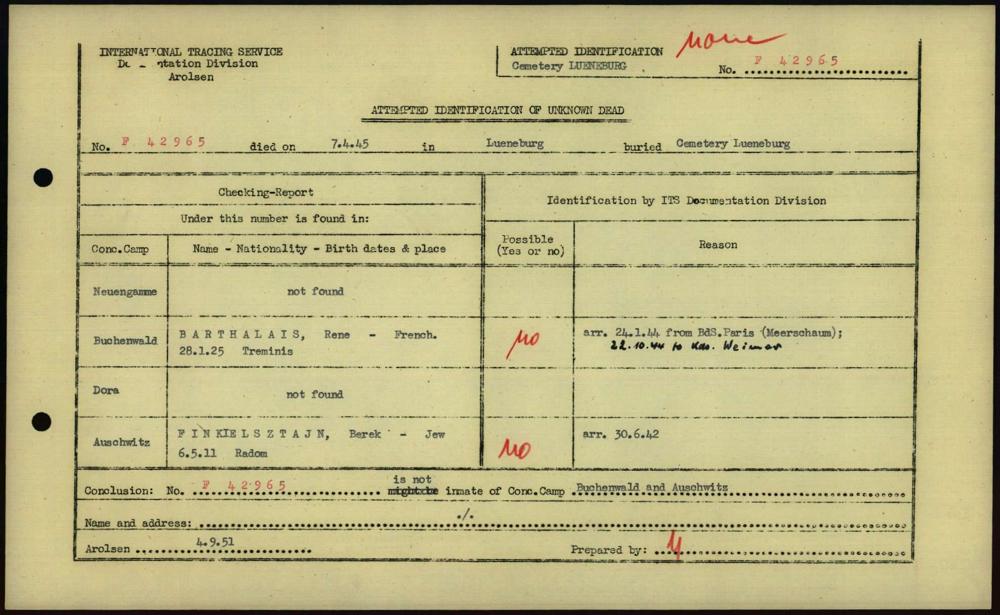 INTERNATIONAL TRACING SERVICE
Documentation Division
Arolsen
ATTEMPTED IDENTIFICATION
None
Cemetery LUENEBURG
No. F 42965
ATTEMPTED IDENTIFICATION OF UNKNOWN DEAD
No. F 42965 died on 7.4.45 in Lueneburg buried Cemetery Lueneburg
Checking-Report
Under this number is found in:
Identification by ITS Documentation Division
Conc.Camp
Name - Nationality - Birth dates & place
Possible
(Yes or no)
Reason
Neuengamme
not found
Buchenwald
BARTHALAIS, Rene - French.
28.1.25 Treminis
no
arr. 24.1.44 from BdS.Paris (Meerschaum);
22.10.44 to Kdo. Weimar
Dora
not found
Auschwitz
FINKIELSZTAJN, Berek - Jew
6.5.11 Radom
no
arr. 30.6.42
is not
Conclusion: No. F 42965 might be inmate of Conc.Camp Buchenwald and Auschwitz
Name and address: ./.
Arolsen 4.9.51
Prepared by: